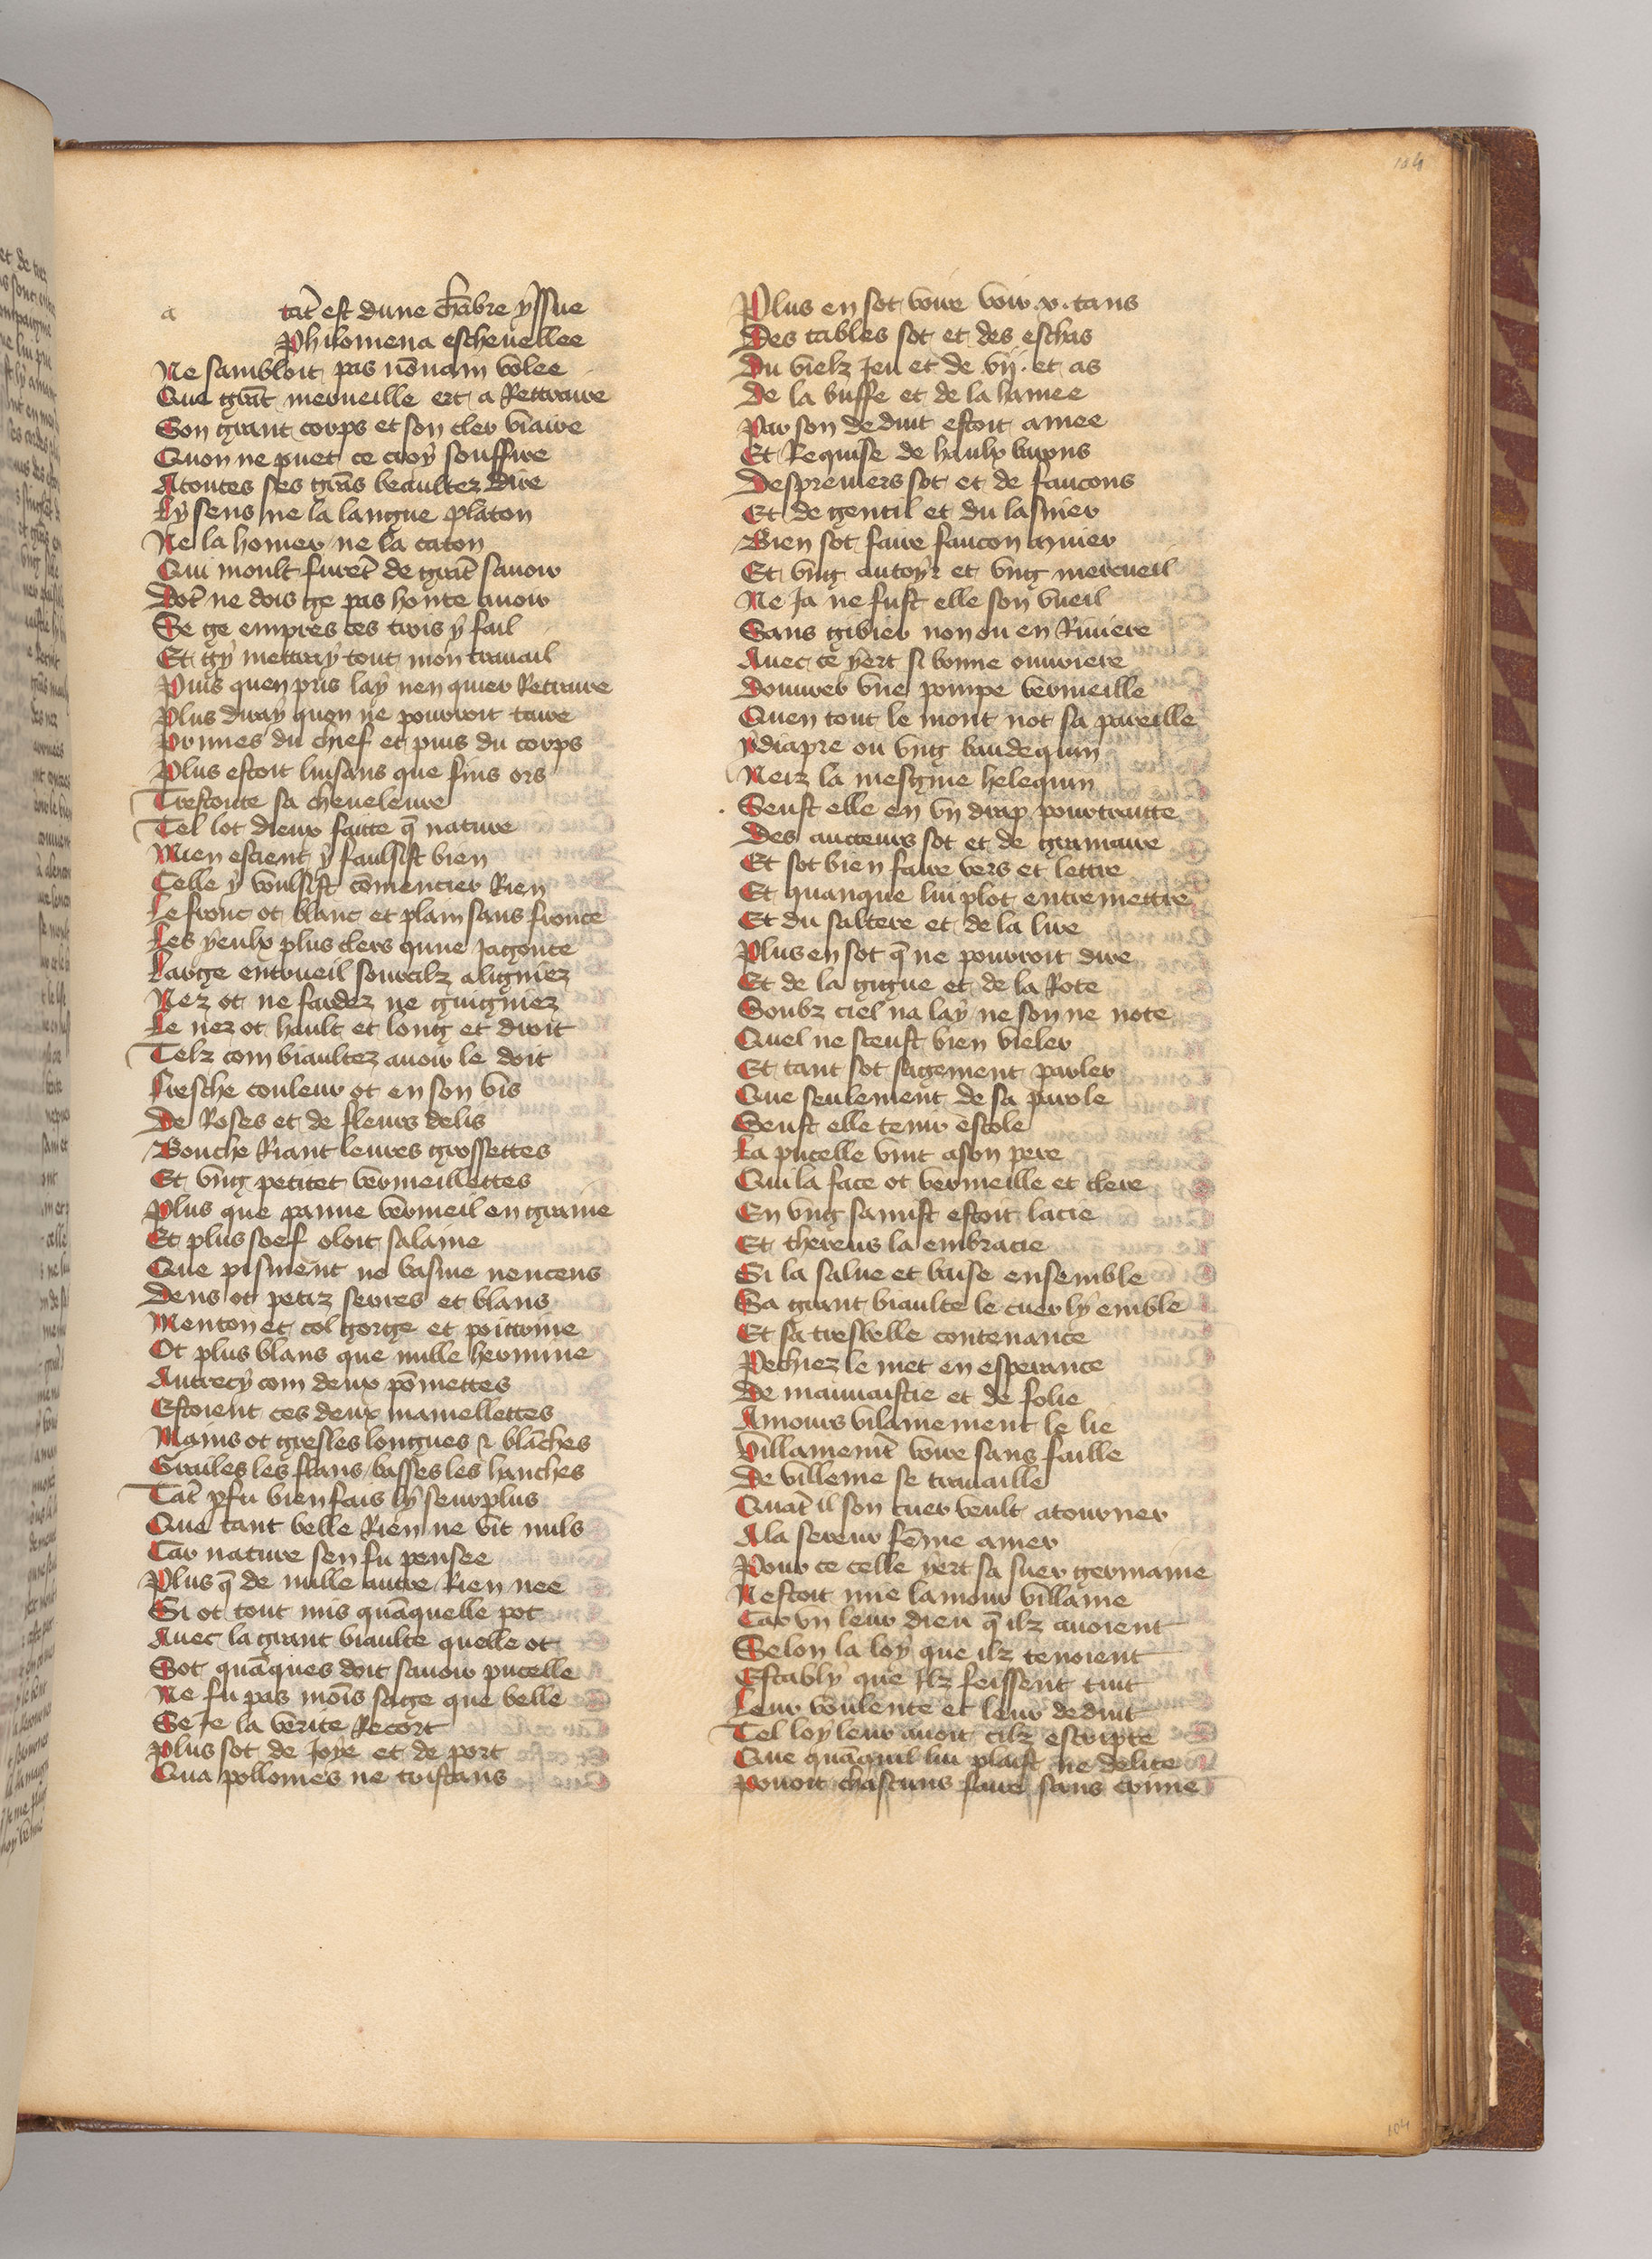 104
a tāt est dune chābre yssue
Philomena escheuellee
Ne sambloit pas nōnain velee
Que grāt merueille ert a Rettraire
Son grant corps et son cler viaire
Quon ne puet ce croy souffire
Atoutes ses grās beaultez dire
Ly sens ne la langue platon
Ne la homer ne la caton
Qui moult furēt de grāt sauoir
Dōt ne dois ge pas honte auoir
Se ge empres ces trois y fail
Et gy mettray tout mon trauail
Puis quenpris lay nen quier Retraire
Plus diray quon ne pourroit taire
Prinies du chief et puis du corps
Plus estoit luisans que fins ors
Trestoute sa cheueleure
Tel lot dieux faitte q̄ nature
Mien escient y faulsist bien
Celle y voulsist cōmencier Rien
Le front ot blanc et plain sans fronce
Les yeulx plus clers qune Jagonce
Large entrueil sourcilz aligniez
Nez ot ne fardez ne guigniez
Le nez ot hault et long et droit
Telz com biaultez auoir le doit
Fresche couleur ot en son vis
De Roses et de fleurs delis
Bouche Riant leures grossettes
Et vng petitet vermeillettes
Plus que panne vermeil en graine
Et plus soef oloit salaine
Que pisment ne basme nencens
Dens ot petiz serres et blans
Menton et col gorge et poittrine
Ot plus blans que nulle hermine
Autrecy com deux pōmettes
Estoient ces deux mamellettes
Mains ot gresles longues & blāches
Grailes les flans / basses les hanches
Tāt pfu bien fais ly seurplus
Que tant belle Rien ne vit nuls
Car nature sen fu pensee
Plus q̄ de nulle autre Rien nee
Si ot tout mis quāquelle pot
Auec la grant biaulte quelle ot
Sot quāques doit sauoir pucelle
Ne fu pas mōis sage que belle
Se Je la verite Recort
Plus sot de Joye et de port
Qua pollomes ne tristans
Plus en sot voire voir .x. tans
Des tables sot et des eschas
Du vielz Jeu et de .vij. et as
De la buffe et de la hamee
Par son deduit estoit amee
Et Requise de haulx barons
Despreuiers sot et de faucons
Et de gentil et du lasnier
Bien sot faire faucon gruier
Et vng autoir et vng mercueil
Ne Ja ne fust elle son vueil
Sans gibier non ou en Riuiere
Auec ce yert si bonne ouuriere
Douurer vne pompe vermeille
Quen tout le mont not sa pareille
ydiapre ou vng baudequin
Neiz la mesgnie helequin
Seust elle en vn drap pourtraitte
Des aucteurs sot et de gramaire
Et sot bien faire vers et lettre
Et quanque lui plot entremettre
Et du saltere et de la lire
Plus en sot q̄ ne pourroit dire
Et de la gigue et de la Rote
Soubz ciel na lay ne son ne note
Quel ne sceust bien vieler
Et tant sot sagement parler
Que seulement de sa parole
Seust elle tenir escole
La pucelle vint a son pere
Qui la face ot vermeille et clere
En vng samist estoit lacie
Et thereus la embracie
Si la salue et baise ensemble
Sa grant biaulte le cuer ly emble
Et sa tresbelle contenance
Pechiez le met en esperance
De mauuaistie et de folie
Amours vilainement le lie
Villamenīt voire sans faille
De villenie se trauaille
Quāt il son cuer veult atourner
A la sereur fēme amer
Pour ce celle yert sa suer germaine
Nestoit mie lamour villaine
Car vn leur dieu q̄ ilz auoient
Selon la loy que ilz tenoient
Estably que Ilz feissent tuit
Leur voulente et leur deduit
Tel loy leur auoit cilz escripte
Que quāquil lui plaist ne delite
Pouoit chascuns faire sans crime
104